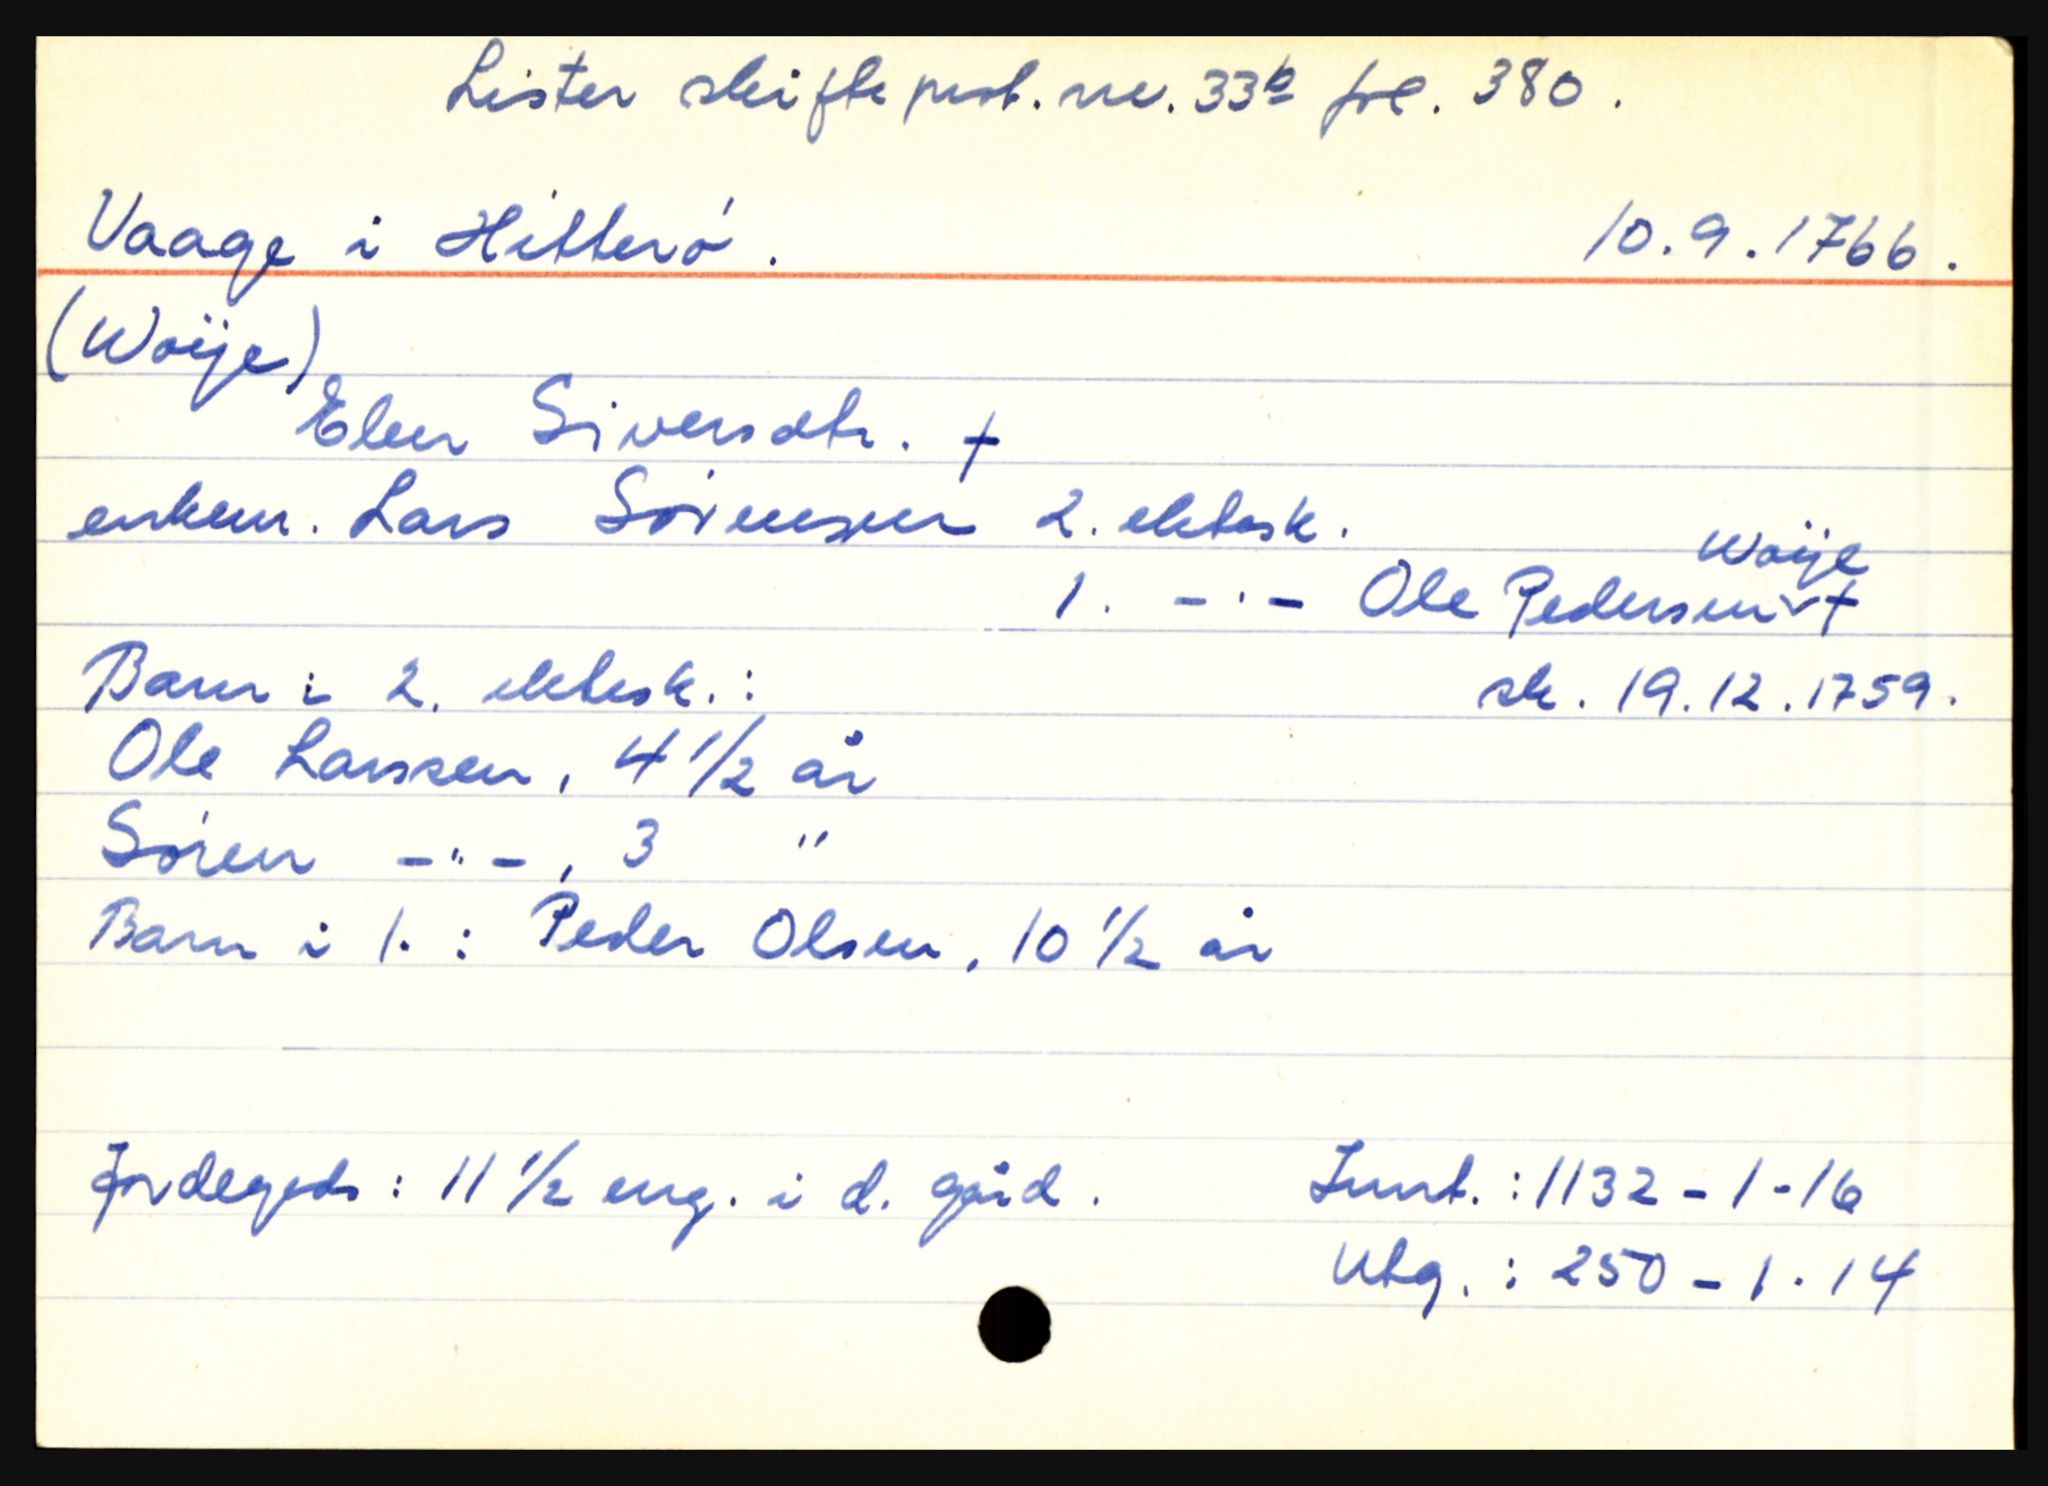 Lister skifteprot. nr. 33b fol. 380.
Vaage i Hitterø. 10.9.1766.
(Woije)
Elen Siversdtr. †
enkem. Lars Sørensen 2. ektesk.
Woije
1. -"- Ole Pedersen ✓ †
Barn i 2. ektesk.: sk. 19.12.1759.
Ole Larssen, 4 1/2 år
Søren -"-, 3 "
Barn i 1. : Peder Olsen, 10 1/2 år
Jordegods: 11 1/2 eng. i d. gård. Innt. : 1132 - 1 - 16
Utg. : 250 - 1 - 14